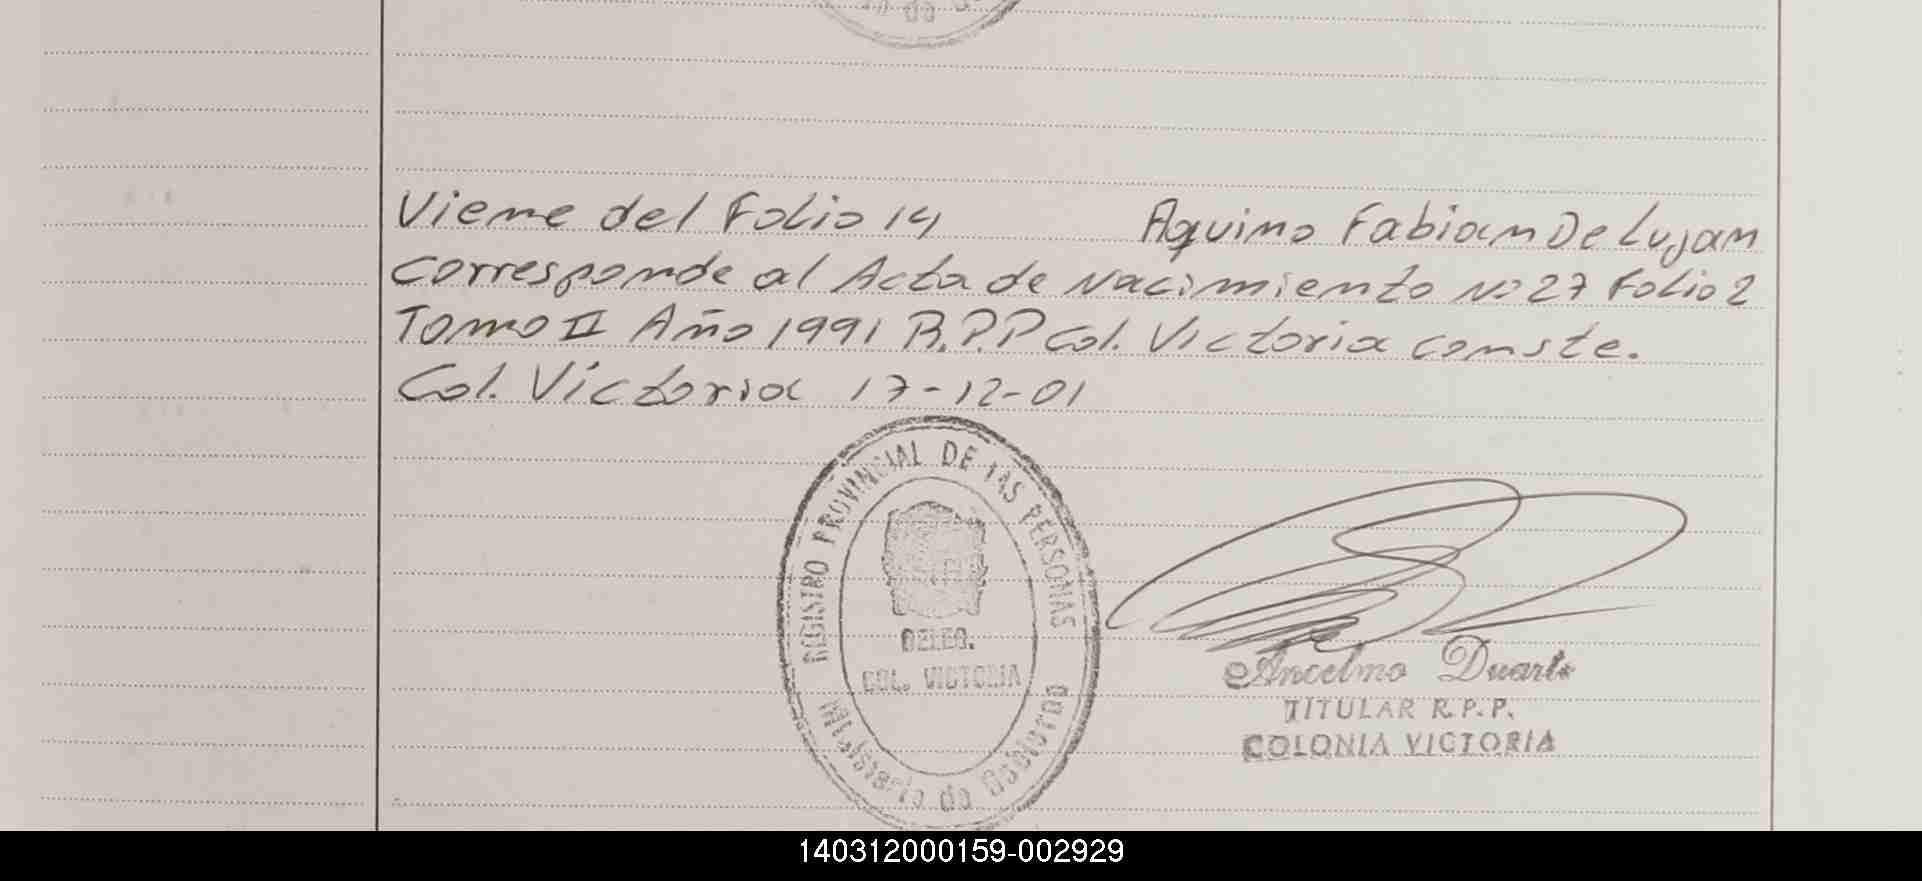 Viene del Folio 14 Aquino Fabian De Lujan
Corresponde al Acta de Nacimiento Nº 27 Folio 2
Tomo II Año 1991 R.P.P Col. Victoria conste.
Col. Victoria 17-12-01
REGISTRO PROVINCIAL DE LAS PERSONAS
DELEG.
COL. VICTORIA
Ministerio de Gobierno
Ancelmo Duarte
TITULAR R.P.P.
COLONIA VICTORIA
140312000159-002929